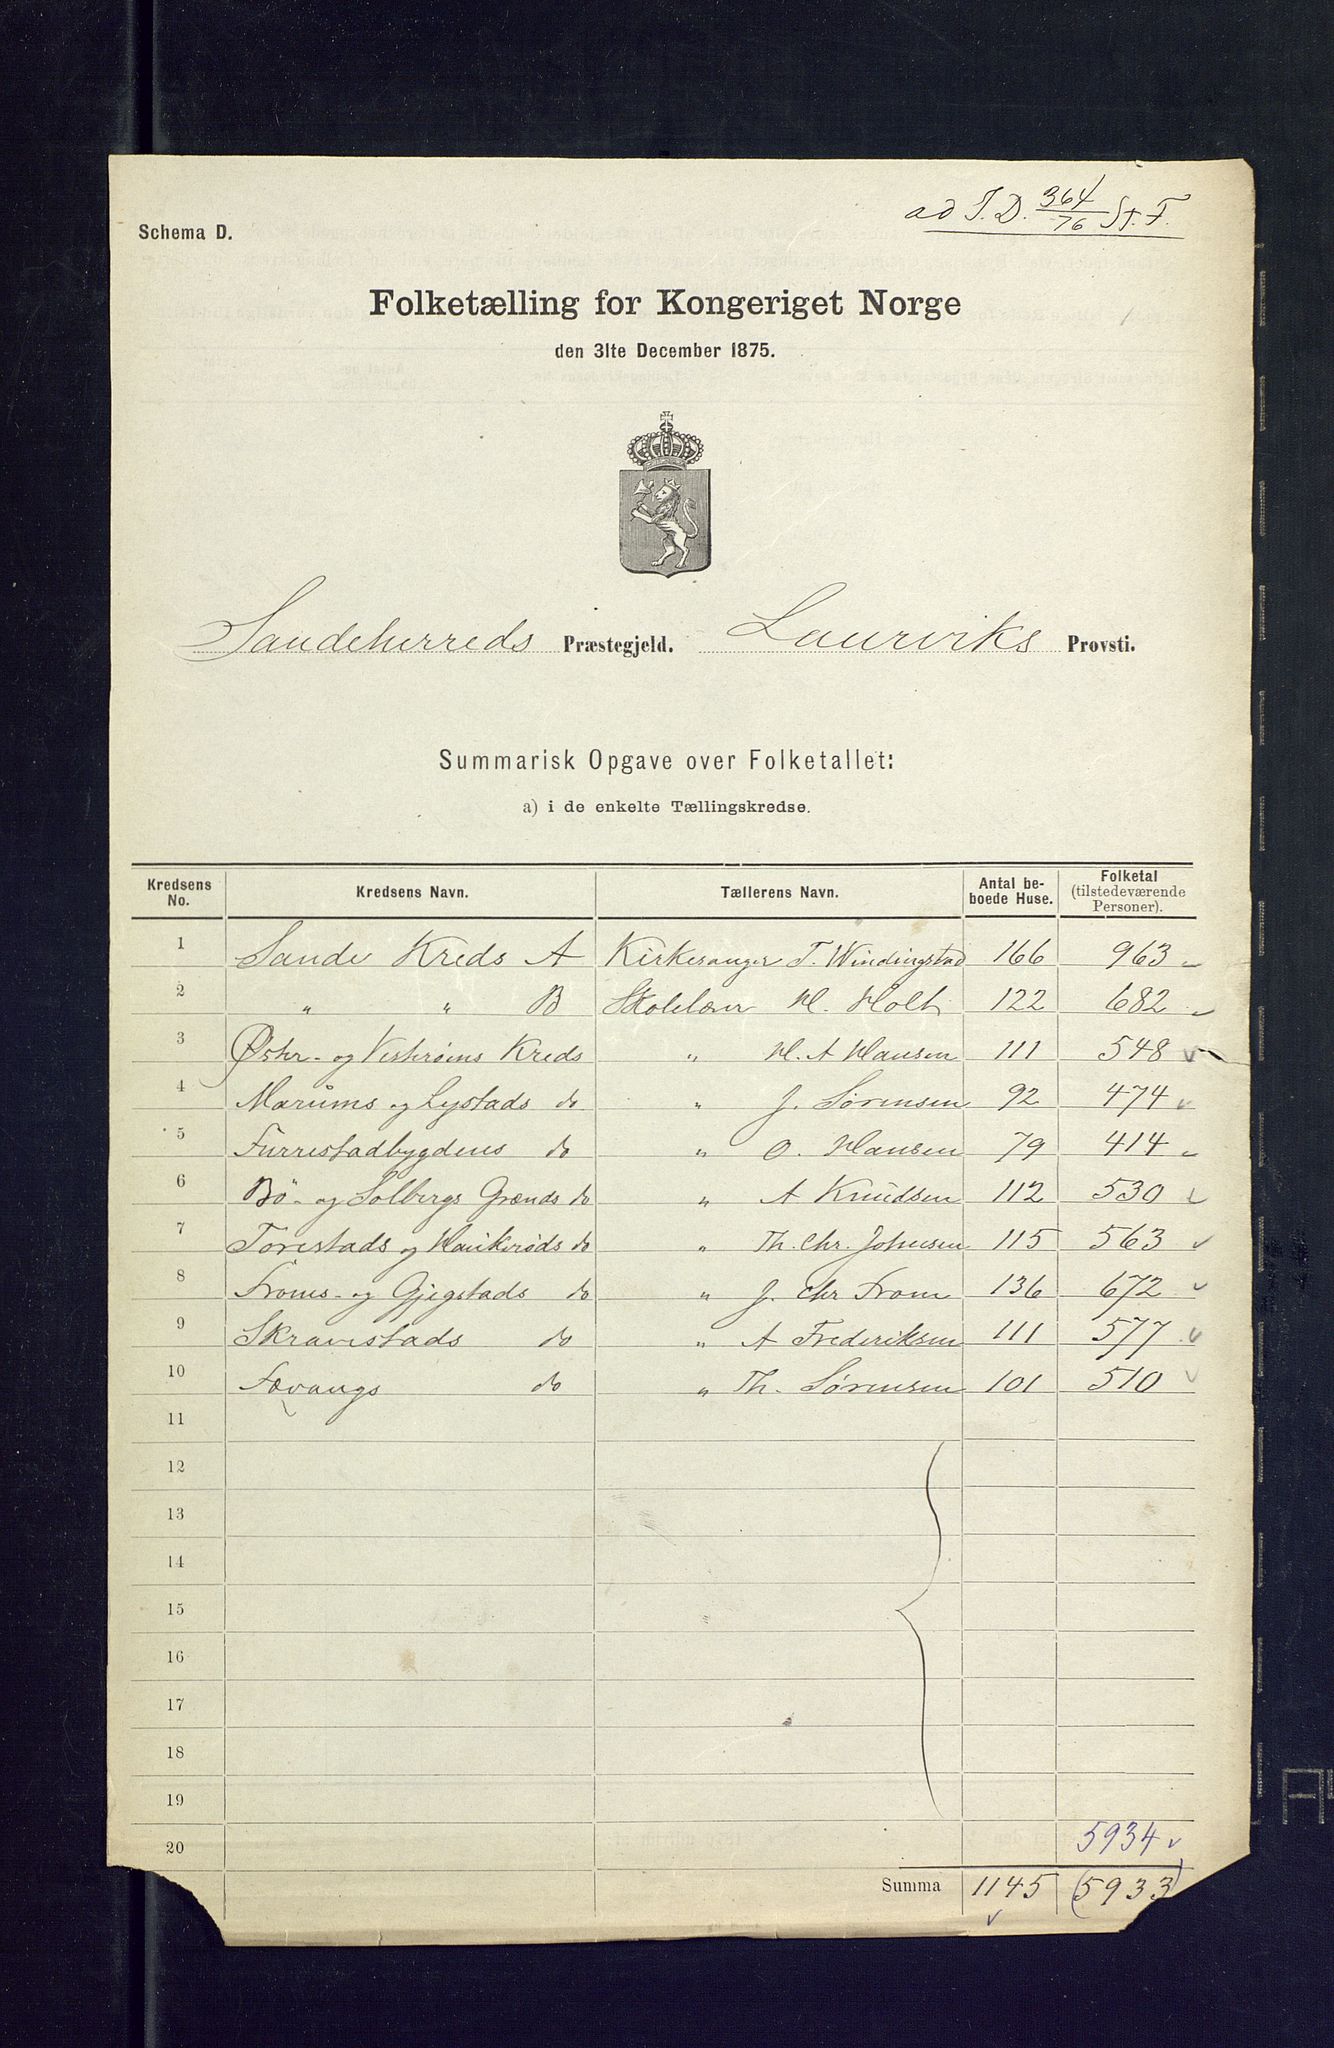 ad J. D. 364/76 St. F.
Schema D.
Folketælling for Kongeriget Norge
den 31te December 1875.
Sandeherreds Præstegjeld. Laurviks Provsti.
Summarisk Opgave over Folketallet:
a) i de enkelte Tællingskredse.
Kredsens No. Kredsens Navn. Tællerens Navn. Antal beboede Huse. Folketal (tilstedeværende Personer).
1 Sande Kreds A Kirkesanger T. Windingstad 166 963
2 " " B Skolelærer H. Holt 122 682
3 Østr- og Vestrøms Kreds " H. A Hansen 111 548
4 Marums og Lystads do " J. Sørensen 92 474
5 Furrestadbygdens do " O. Hansen 79 414
6 Bö- og Solbergs Grænds do " A Knudsen 112 530
7 Torestads og Haukerøds do " Th. Chr. Johnsen 115 563
8 Froms- og Gjegstads do " J. Chr From 136 672
9 Skravestads do " A Frederiksen 111 577
10 Fævangs do " Th. Sørensen 101 510
11
12
13
14
15
16
17
18
19
20 5934
Summa 1145 (5933)